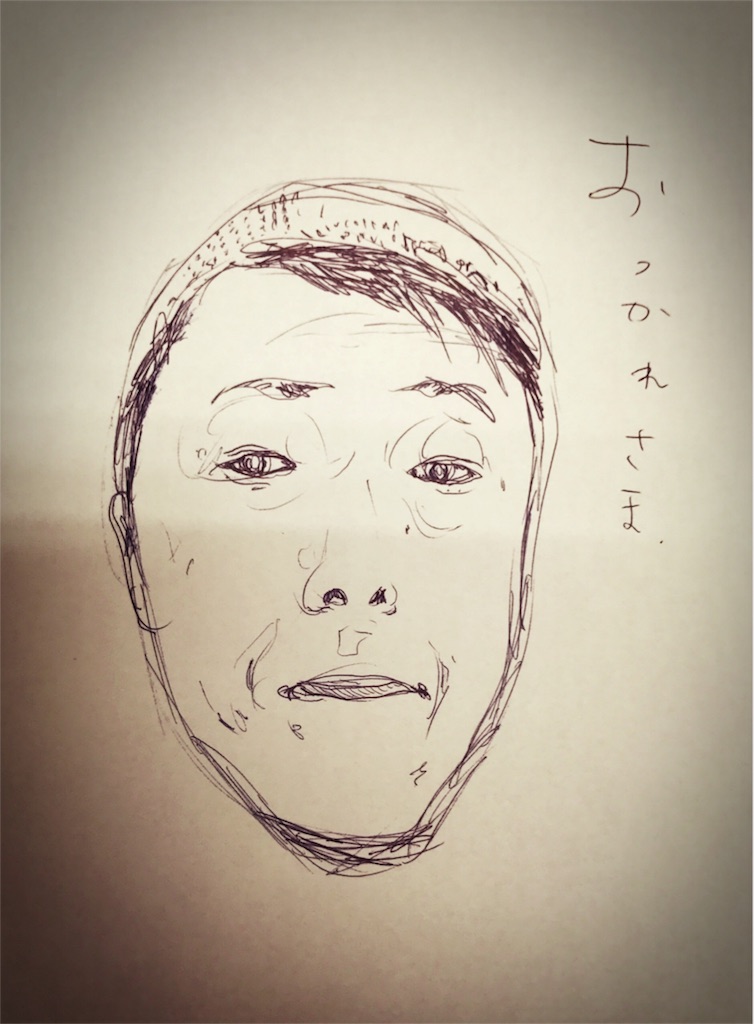 おつかれさま.